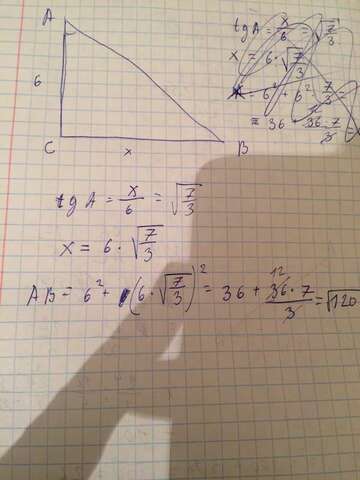 A
6
C
x
B
tg A = x/6 = √(7/3)
x = 6 · √(7/3)
tg A = x/6 = √(7/3)
x = 6 · √(7/3)
AB = 6² + (6 · √(7/3))² = 36 + 12 36 · 7/3 = √120